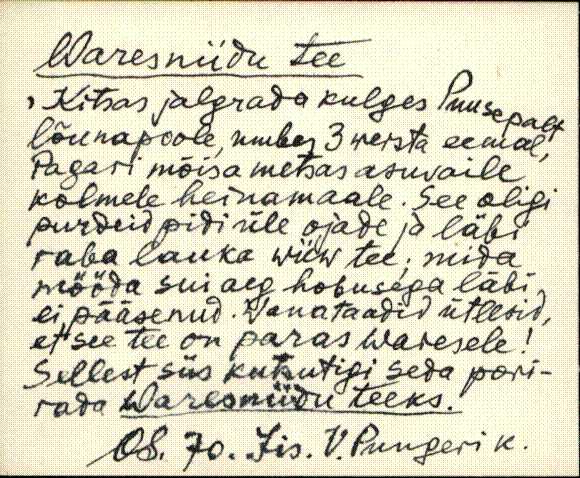 Waresniidu tee
, Kitsas jalgrada kulges Puusepalt
lõunapoole, umbes 3 wersta eemal,
Pagari mõisa metsas asuvaile
kolmele heinamaale. See oligi
purdeid pidi üle ojade ja läbi
raba lauka wiiw tee; mida
mööda sui aeg hobusega läbi
ei pääsenud. Vanataadid ütlesid,
et see tee on paras waresele!
Sellest siis kutsutigi seda pori-
rada Waresniidu teeks.
08. 70. Jis. V. Pungerik.